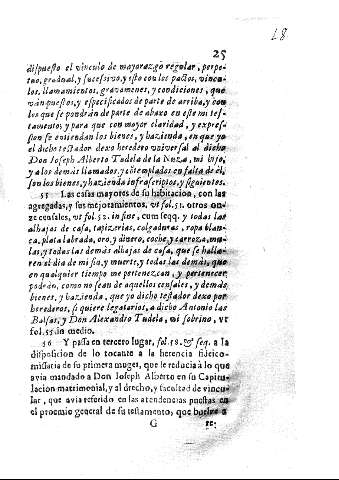 18
25
dispuesto el vinculo de mayorazgo regular, perpe-
tuo, gradual, y sucesivo, y esto con los pactos, vincu-
los, llamamientos, gravamenes, y condiciones, que
vàn puestos, y especificados de parte de arriba, y con
los que se pondràn de parte de abaxo en este mi tes-
tamento; y para que con mayor claridad, y expres-
sion se entiendan los bienes, y hazienda, en que yo
el dicho testador dexo heredero universal al dicho
Don Joseph Alberto Tudela de la Nuza, mi hijo,
y a los demàs llamados, y cõtemplados en falta de èl,
son los bienes, y hazienda infrascriptos, y siguientes.
55 Las casas mayores de su habitacion, con las
agregadas, y sus mejoramientos, vt fol. 51. otros on-
ze censales, vt fol. 52. in fine, cum seqq. y todas las
alhajas de casa, tapizerias, colgaduras, ropa blan-
ca, plata labrada, oro, y dinero, coche, y carroza, mu-
las, y todas las demàs alhajas de casa, que se halla-
ren al dia de mi fin, y muerte, y todas las demàs, que
en qualquier tiempo me pertenezcan, y pertenecer
podràn, como no sean de aquellos censales, y demàs
bienes, y hazienda, que yo dicho testador dexo por
herederos, si quiere legatarios, a dicho Antonio las
Balsas, y Don Alexandro Tudela, mi sobrino, vt
fol. 55. in medio.
56 Y passa en tercero lugar, fol. 58. & seq. a la
disposicion de lo tocante a la herencia fideico-
missaria de su primera muger, que le reducia à lo que
avia mandado a Don Joseph Alberto en su Capitu-
lacion matrimonial, y al drecho, y facultad de vincu-
lar, que avia referido en las atendencias puestas en
el proemio general de su testamento, que buelve a
G re-